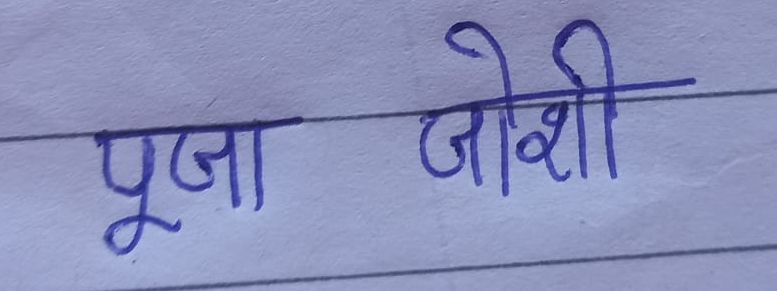 पूजा जोशी